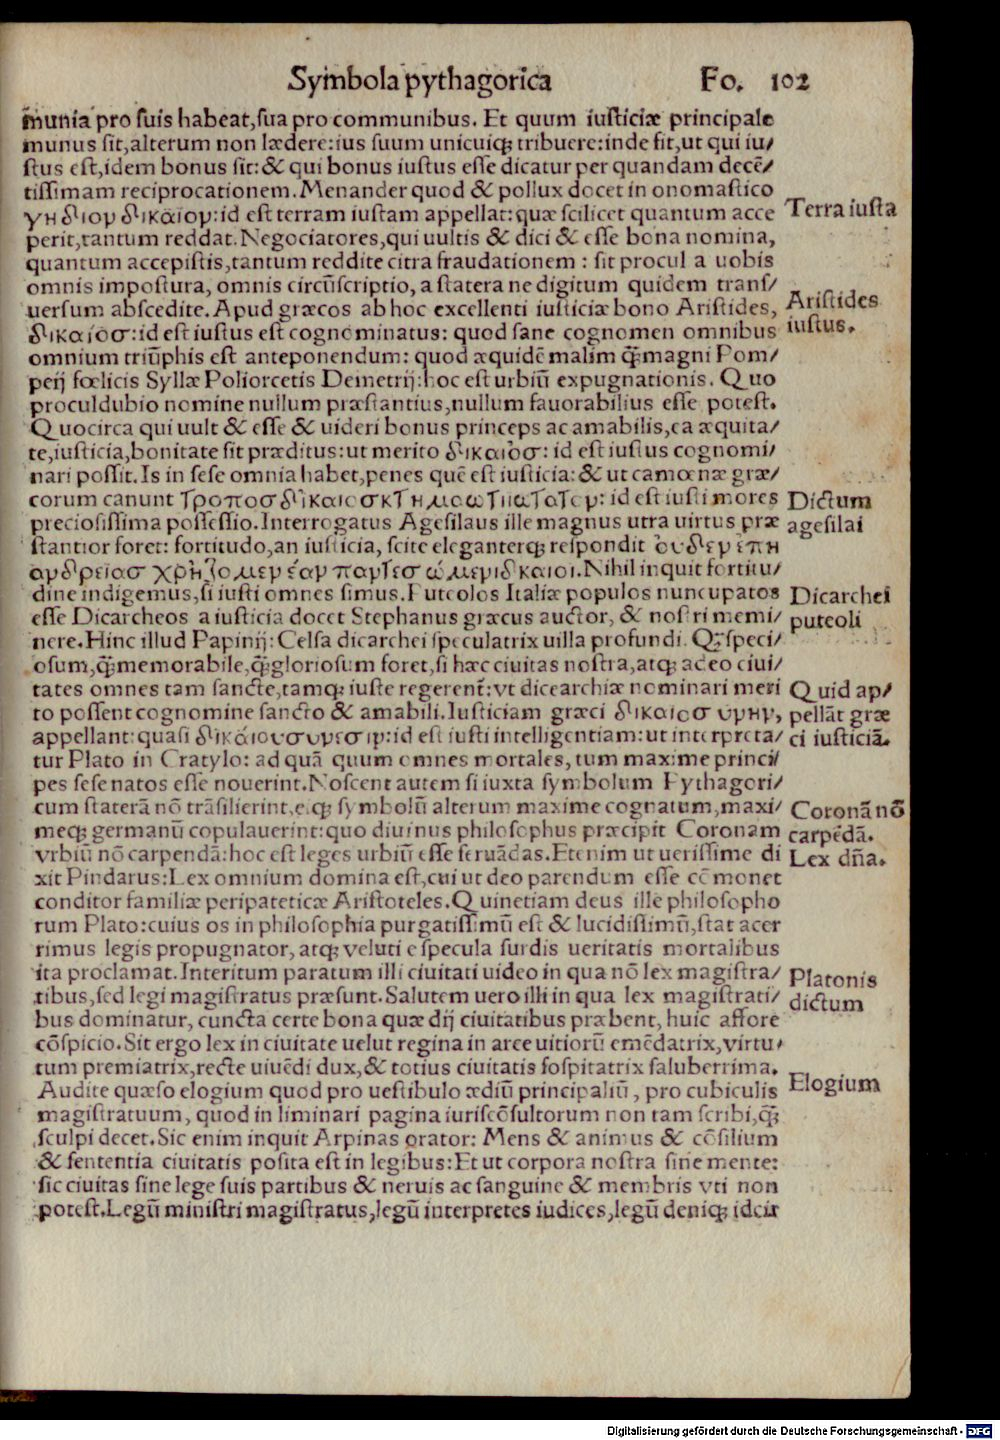 Symbola pythagorica Fo. 102
munia pro suis habeat, sua pro communibus. Et quum iusticiæ principale
munus sit, alterum non lædere: ius suum unicuiqꝫ tribuere: inde fit, ut qui iu/
stus est, idem bonus sit: & qui bonus iustus esse dicatur per quandam decē/
tissimam reciprocationem. Menander quod & pollux docet in onomastico
γηδιον δικαιον: id est terram iustam appellat: quæ scilicet quantum acce
Terra iusta
perit, tantum reddat. Negociatores, qui uultis & dici & esse bona nomina,
quantum accepistis, tantum reddite citra fraudationem : sit procul a uobis
omnis impostura, omnis circūscriptio, a statera ne digitum quidem trans/
uersum abscedite. Apud græcos ab hoc excellenti iusticiæ bono Aristides,
Aristides
δικαιοσ: id est iustus est cognominatus: quod sane cognomen omnibus
iustus.
omnium triūphis est anteponendum: quod æquidē malim q̄ꝫ magni Pom/
peij fœlicis Syllæ Poliorcetis Demetrij: hoc est urbiū expugnationis. Quo
proculdubio nomine nullum præstantius, nullum fauorabilius esse potest.
Quocirca qui uult & esse & uideri bonus princeps ac amabilis, ea æquita/
te, iusticia, bonitate sit præditus: ut merito δικαιὀσ: id est iustus cognomi/
nari possit. Is in sese omnia habet, penes quē est iusticia: & ut camœnæ græ/
corum canunt τροποσ δίκαιοσ κτημα ωτιματατον: id est iusti mores
Dictum
preciosissima possessio. Interrogatus Agesilaus ille magnus utra uirtus præ
agesilai
stantior foret: fortitudo, an iusticia, scite eleganterqꝫ respondit ὀυδεν ἐπη
ανδρείασ χρἠζομεν ἐαν παντεσ ὠμεν δικαιοι. Nihil inquit fortitu/
dine indigemus, si iusti omnes simus. Puteolos Italiæ populos nuncupatos
Dicarchei
esse Dicarcheos a iusticia docet Stephanus græcus auctor, & nostri memi/
puteoli
nere. Hinc illud Papinij: Celsa dicarchei speculatrix uilla profundi. Qꝫ speci/
osum, q̄ꝫ memorabile, q̄ꝫ gloriosum foret, si hæc ciuitas nostra, atqꝫ adeo ciui/
tates omnes tam sancte, tamqꝫ iuste regerent̄: vt dicearchiæ nominari meri
Quid ap/
to possent cognomine sancto & amabili. Iusticiam græci δικαιοσ υνην,
pellāt græ
appellant: quasi δικάιουσυνεσιν: id est iusti intelligentiam: ut interpreta/
ci iusticiā.
tur Plato in Cratylo: ad quā quum omnes mortales, tum maxime princi/
pes sese natos esse nouerint. Noscent autem si iuxta symbolum Pythagori/
cum staterā nō trāsilierint, eiqꝫ symbolū alterum maxime cognatum, maxi/
Coronā nō
meqꝫ germanū copulauerint: quo diuinus philosophus præcipit Coronam
carpēdā.
vrbiū nō carpendā: hoc est leges urbiū esse seruādas. Etenim ut uerissime di
Lex dn̄a.
xit Pindarus: Lex omnium domina est, cui ut deo parendum esse cē monet
conditor familiæ peripateticæ Aristoteles. Quinetiam deus ille philosopho
rum Plato: cuius os in philosophia purgatissimū est & lucidissimū, stat acer
rimus legis propugnator, atqꝫ veluti e specula surdis ueritatis mortalibus
ita proclamat. Interitum paratum illi ciuitati uideo in qua nō lex magistra/
Platonis
tibus, sed legi magistratus præsunt. Salutem uero illi in qua lex magistrati/
dictum
bus dominatur, cuncta certe bona quæ dij ciuitatibus præbent, huic affore
cōspicio. Sit ergo lex in ciuitate uelut regina in arce uitiorū emēdatrix, virtu/
tum premiatrix, recte uiuēdi dux, & totius ciuitatis sospitatrix saluberrima.
Audite quæso elogium quod pro uestibulo ædiū principaliū, pro cubiculis
Elogium
magistratuum, quod in liminari pagina iuriscōsultorum non tam scribi, q̄ꝫ
sculpi decet. Sic enim inquit Arpinas orator: Mens & animus & cōsilium
& sententia ciuitatis posita est in legibus: Et ut corpora nostra sine mente:
sic ciuitas sine lege suis partibus & neruis ac sanguine & membris vti non
potest. Legū ministri magistratus, legū interpretes iudices, legū deniqꝫ idcir
Digitalisierung gefördert durch die Deutsche Forschungsgemeinschaft - DFG